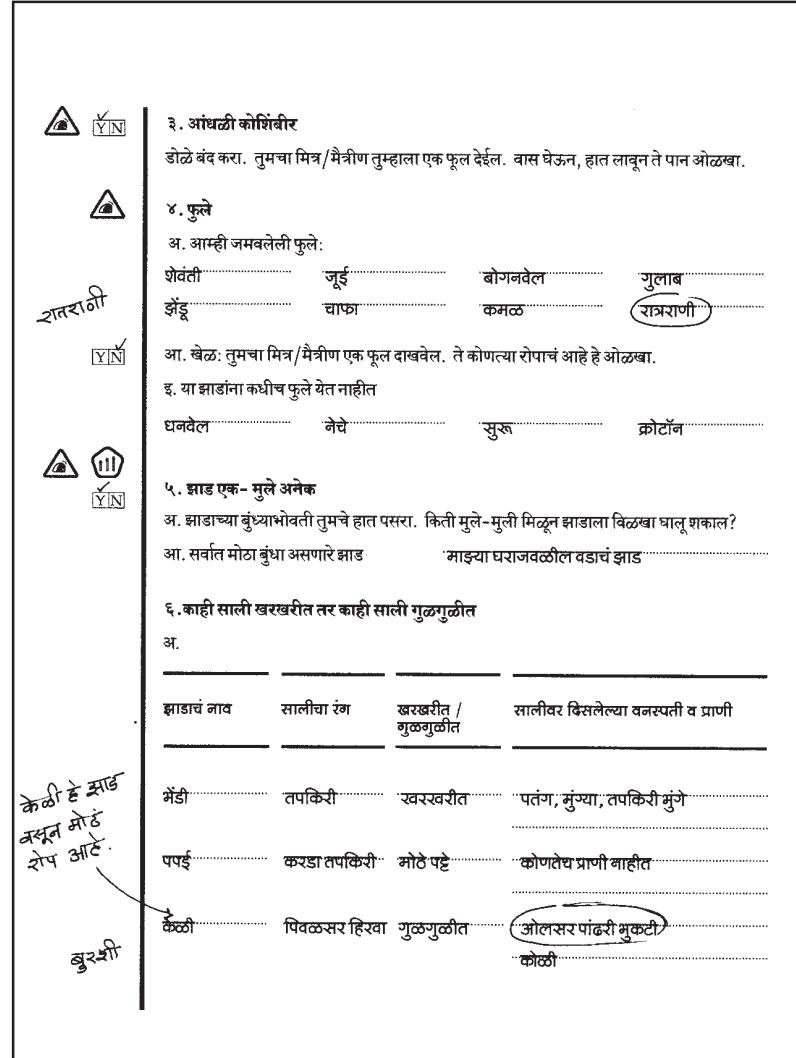 Y N
३. आंधळी कोशिंबीर
डोळे बंद करा. तुमचा मित्र/मैत्रीण तुम्हाला एक फूल देईल. वास घेऊन, हात लावून ते पान ओळखा.
४. फुले
अ. आम्ही जमवलेली फुले:
शेवंती जूई बोगनवेल गुलाब
रातराणी
झेंडू चाफा कमळ रात्रराणी
Y N
आ. खेळ: तुमचा मित्र/मैत्रीण एक फूल दाखवेल. ते कोणत्या रोपाचं आहे हे ओळखा.
इ. या झाडांना कधीच फुले येत नाहीत
धनवेल नेचे सुरू क्रोटॉन
Y N
५. झाड एक- मुले अनेक
अ. झाडाच्या बुंध्याभोवती तुमचे हात पसरा. किती मुले-मुली मिळून झाडाला विळखा घालू शकाल?
आ. सर्वात मोठा बुंधा असणारे झाड माझ्या घराजवळील वडाचं झाड
६.काही साली खरखरीत तर काही साली गुळगुळीत
अ.
झाडाचं नाव सालीचा रंग खरखरीत / गुळगुळीत सालीवर दिसलेल्या वनस्पती व प्राणी
भेंडी तपकिरी खरखरीत पतंग, मुंग्या, तपकिरी भुंगे
केळी हे झाड
नसून मोठं
रोप आहे.
पपई करडा तपकिरी मोठे पट्टे कोणतेच प्राणी नाहीत
केळी पिवळसर हिरवा गुळगुळीत ओलसर पांढरी भुकटी
बुरशी
कोळी